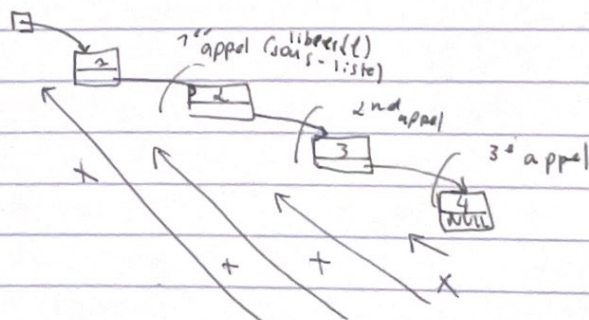 1er appel liberer(t)
(sous-liste)
1
2
2nd appel
3
3e appel
4
NULL
x
+
+
x